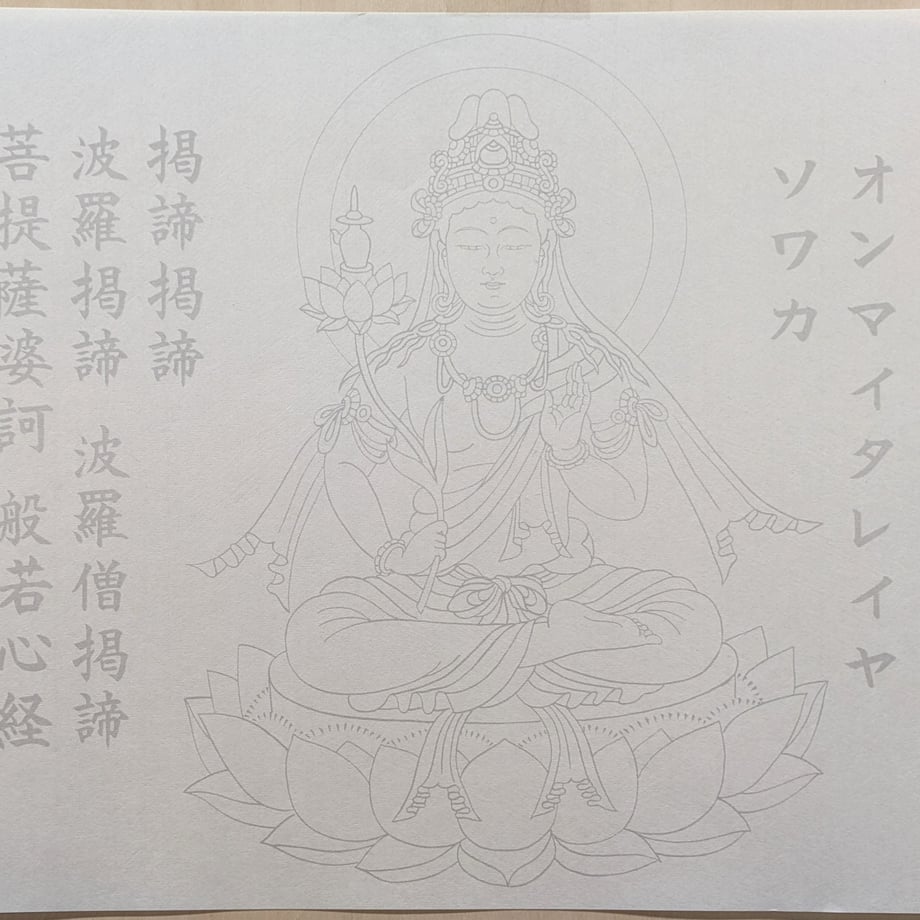 オンマイタレイヤ
ソワカ
掲諦掲諦
波羅掲諦 波羅僧掲諦
菩提薩婆訶 般若心経